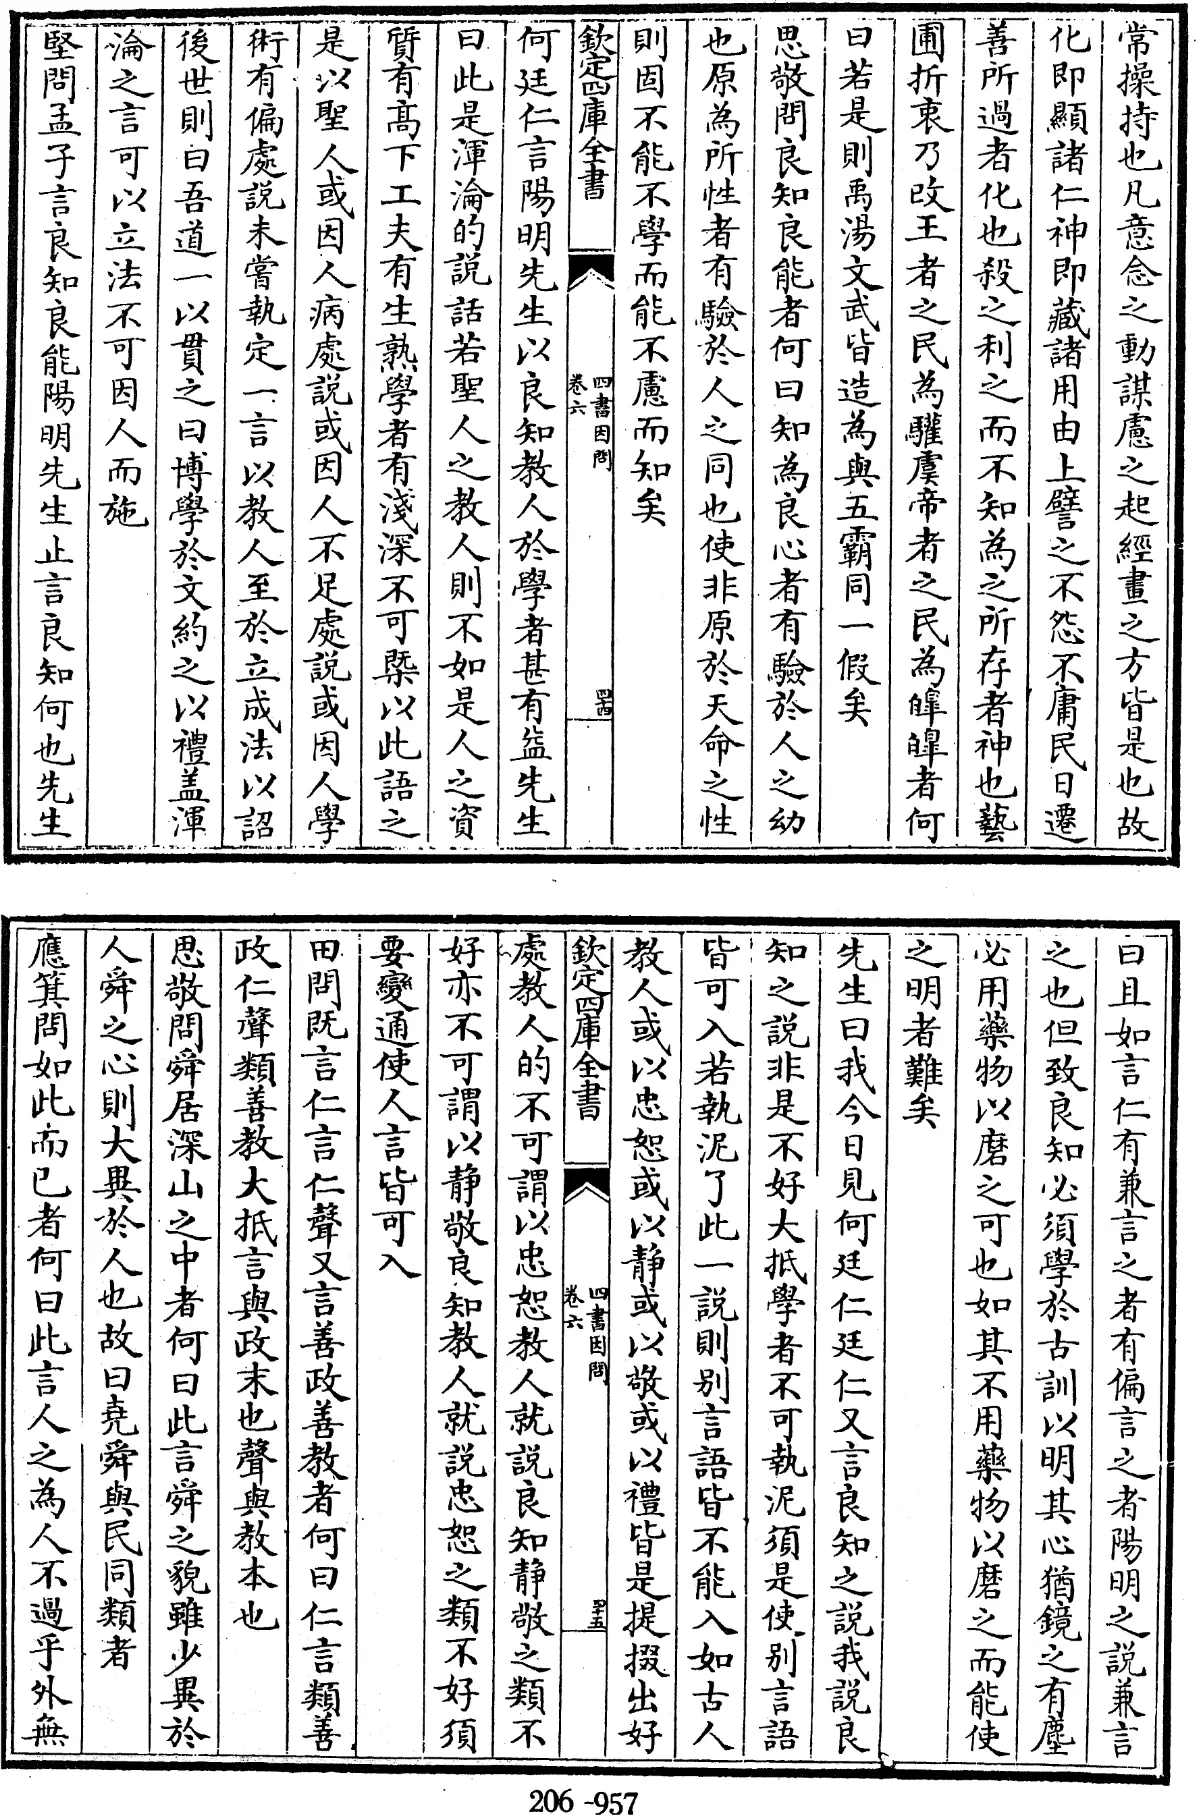 常操持也凡意念之動謀慮之起經畫之方皆是也故
化即顯諸仁神即藏諸用由上譬之不怨不庸民日遷
善所過者化也殺之利之而不知為之所存者神也藝
圃折衷乃改王者之民為驩虞帝者之民為皥皥者何
曰若是則禹湯文武皆造為與五霸同一假矣
思敬問良知良能者何曰知為良心者有驗於人之幼
也原為所性者有驗於人之同也使非原於天命之性
則因不能不學而能不慮而知矣
欽定四庫全書
四書因問
卷六
四十四
何廷仁言陽明先生以良知教人於學者甚有益先生
曰此是渾淪的說話若聖人之教人則不如是人之資
質有高下工夫有生熟學者有淺深不可槩以此語之
是以聖人或因人病處說或因人不足處說或因人學
術有偏處說未嘗執定一言以教人至於立成法以詔
後世則曰吾道一以貫之曰博學於文約之以禮盖渾
淪之言可以立法不可因人而施
堅問孟子言良知良能陽明先生止言良知何也先生
曰且如言仁有兼言之者有偏言之者陽明之說兼言
之也但致良知必須學於古訓以明其心猶鏡之有塵
必用藥物以磨之可也如其不用藥物以磨之而能使
之明者難矣
先生曰我今日見何廷仁廷仁又言良知之說我說良
知之說非是不好大抵學者不可執泥須是使別言語
皆可入若執泥了此一說則別言語皆不能入如古人
教人或以忠恕或以靜或以敬或以禮皆是提掇出好
欽定四庫全書
四書因問
卷六
四十五
處教人的不可謂以忠恕教人就說良知靜敬之類不
好亦不可謂以靜敬良知教人就說忠恕之類不好須
要變通使人言皆可入
田問既言仁言仁聲又言善政善教者何曰仁言類善
政仁聲類善教大抵言與政末也聲與教本也
思敬問舜居深山之中者何曰此言舜之貌雖少異於
人舜之心則大異於人也故曰堯舜與民同類者
應箕問如此而已者何曰此言人之為人不過乎外無
206-957